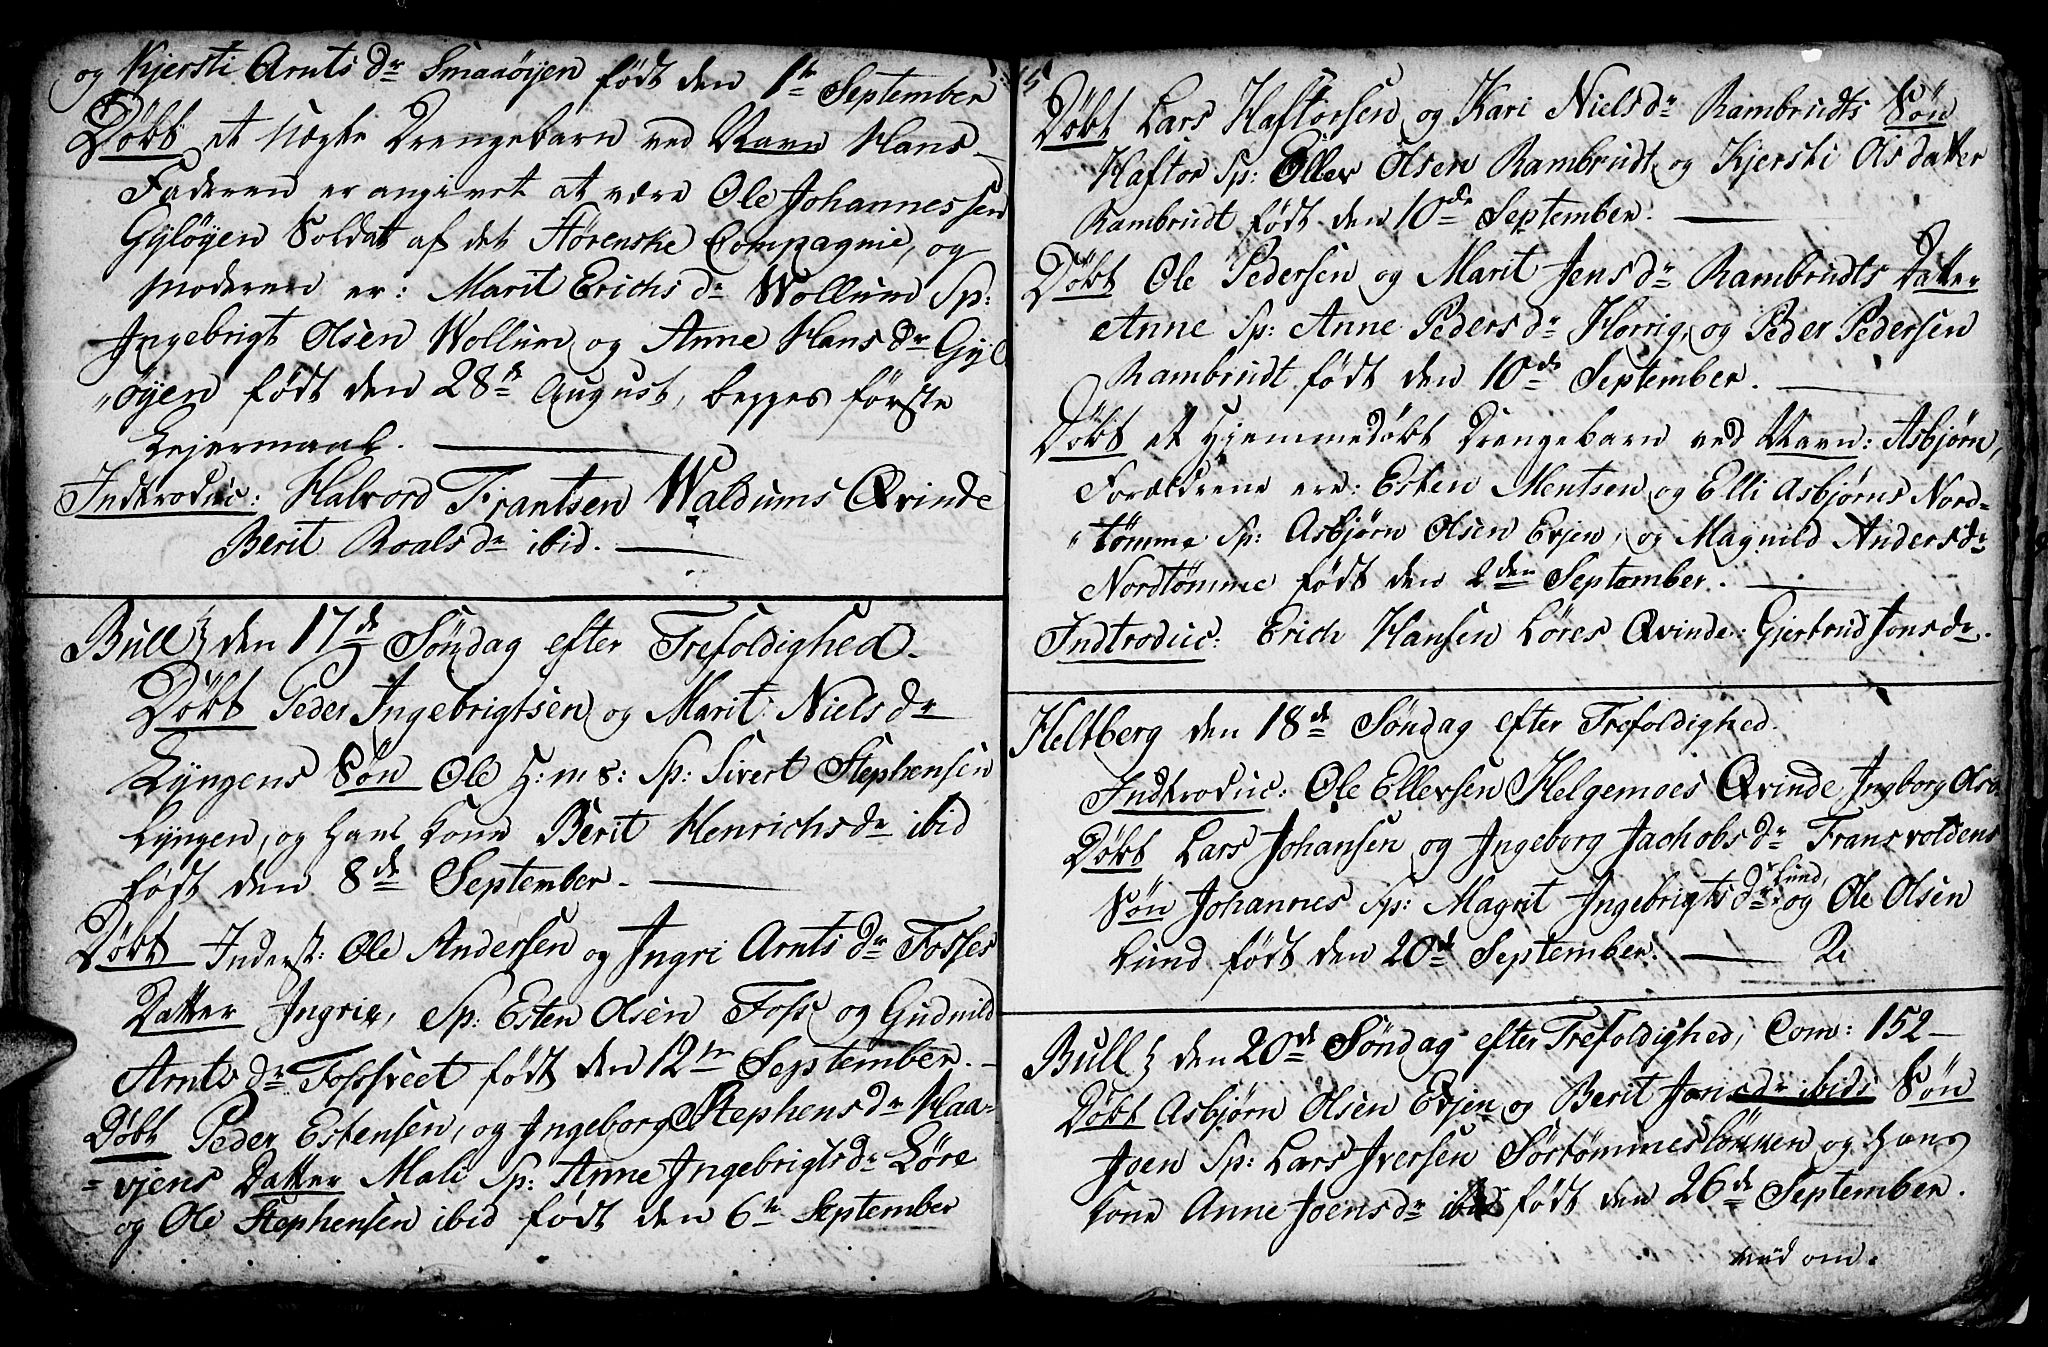 og Kjersti Arnts Dr Smaaøyen født den 1te September
Døbt et uægte Drengebarn ved Navn Hans
Faderen er angivet at være Ole Johannessen
Gyløyen Soldat af det Størenske Compagnie, og
Moderen er: Marit Erichs Dr Wollum Sp:
Ingebrigt Olsen Wollum og Anne Hans Dr Gyl
"øyen født den 28de August, begges første
Lejermaal.
Indtroduc: Halvord Frantsen Waldums Qvinde
Berit Roals Dr ibid.
Bull den 17de Søndag efter Trefoldighed.
Døbt Peder Ingebrigtsen og Marit Niels Dr
Lyngens Søn Ole H: m 8: Sp: Sivert Stephensen
Lyngen, og hans Kone Berit Henrichs Dr ibid
født den 8de September.
Døbt Inderst: Ole Andersen og Ingri Arnts Dr Fosses
Datter Ingrie, Sp: Esten Olsen Foss og Gudnild
Arnts Dr Fossveet født den 12te September.
Døbt Peder Estensen, og Ingeborg Stephens Dr Haa-
-vjens Datter Mali Sp: Anne Ingebrigts Dr Løre
og Ole Stephensen ibid født den 6te September
Døbt Lars Haftorsen og Kari Niels Dr Rambrudts Søn
Haftor Sp: Ellev Olsen Rambrudt og Kjersti Olsdatter
Rambrudt født den 10de September.
Døbt Ole Pedersen og Marit Jens Dr Rambrudts Datter
Anne Sp: Anne Peders Dr Horrig, og Peder Pedersen
Rambrudt født den 10de September.
Døbt et Hjemmedøbt Drengebarn ved Navn: Asbjørn,
Forældrene ere: Esten Mentsen og Elli Asbjørns Nord=
"tømme Sp: Asbjørn Olsen Evjen, og Magnild Anders Dr
Nordtømme født den 2den September.
Indtroduc: Erich Hansen Løres Qvinde: Gjertrud Jons Dr.
Heltberg den 18de Søndag efter Trefoldighed.
Indtroduc: Ole Ellevsen Helgemoes Qvinde Ingborg Ols D
Døbt Lars Johansen og Ingeborg Jachobs Dr Fransvoldens
Søn Johannes Sp: Magrit Ingebrigts Dr Lund, og Ole Olsen
Lund født den 20de September.
Bull den 20de Søndag efter Trefoldighed, Com: 152
Døbt Asbjørn Olsen Evjen og Berit Jons Dr ibids Søn
Joen Sp: Lars Iversen Sørtømmesløkken og hans
Kone Anne Joens Dr ibid født den 26de September.
vend om.